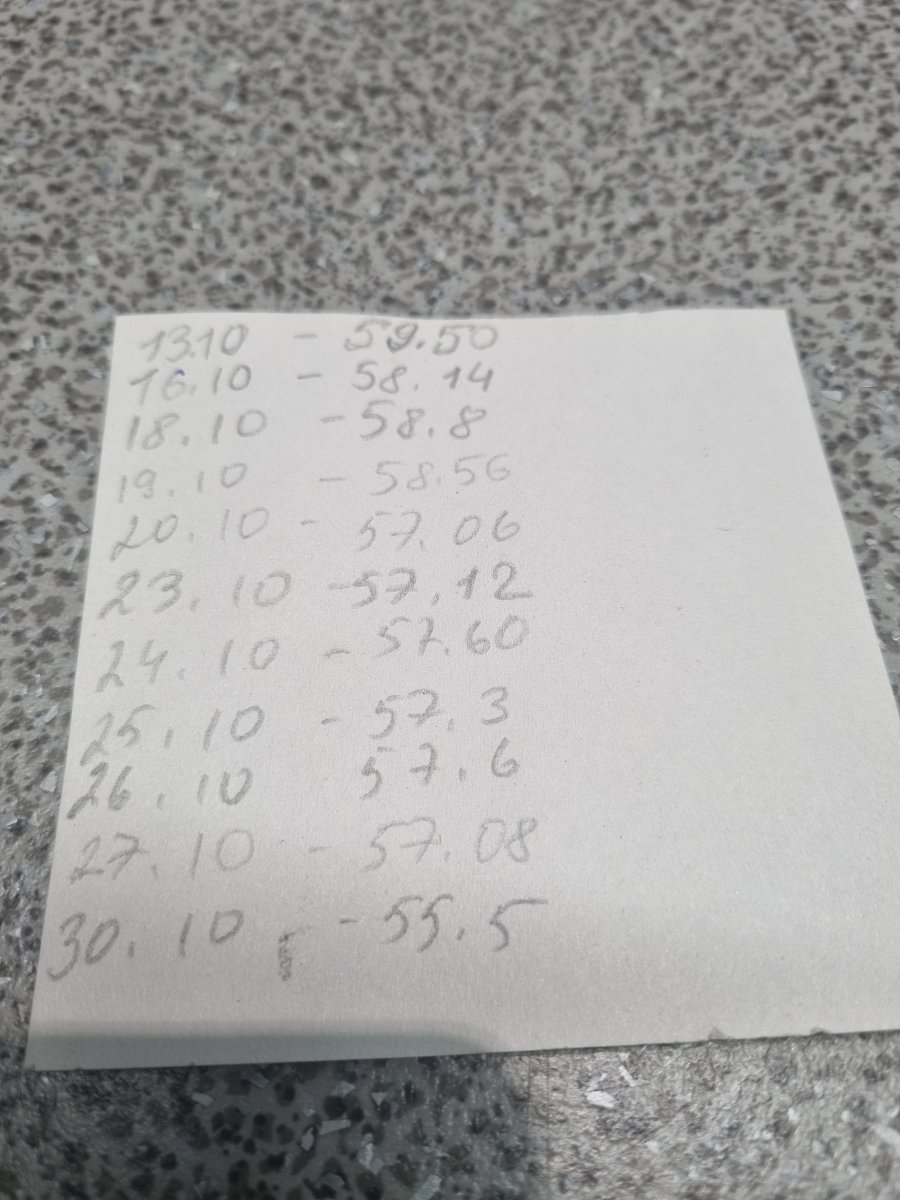 13.10 - 59.50
16.10 - 58.14
18.10 - 58.8
19.10 - 58.56
20.10 - 57.06
23.10 - 57.12
24.10 - 57.60
25.10 - 57.3
26.10 57.6
27.10 - 57.08
30.10 - 55.5